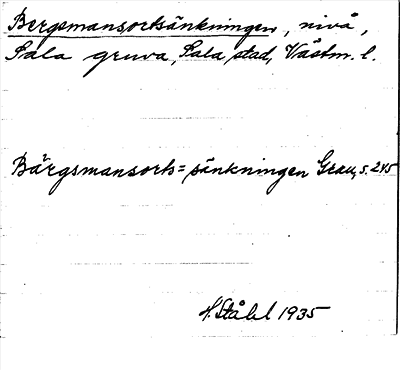 Bergsmansortsänkningen, nivå,
Sala gruva, Sala stad, Västm. l.
Bärgsmansorts=sänkningen Grau, s. 245
H. Ståhl 1935